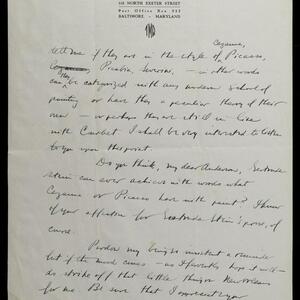 118 NORTH EXETER STREET
Post Office Box 553
BALTIMORE - MARYLAND
Cezanne,
tell me if they are in the style of Picasso,
Picabia, — in other words
can they be categorized with any modern school of
painting or have they a peculiar theory of their
own — or perhaps they are still in line
with Courbet I shall be very interested to listen
to you upon this point.
Do you think, my dear Anderson, Gertrude
Stein can ever achieve with words what
Cezanne or Picasso have with paint? I know
of your affection for Gertrude Stein's prose, of
course.
Pardon my being so insistent a reminder
but if the mood comes — as I fervently hope it will —
do strike off that little thing on New Orleans
for me. Be sure that I your